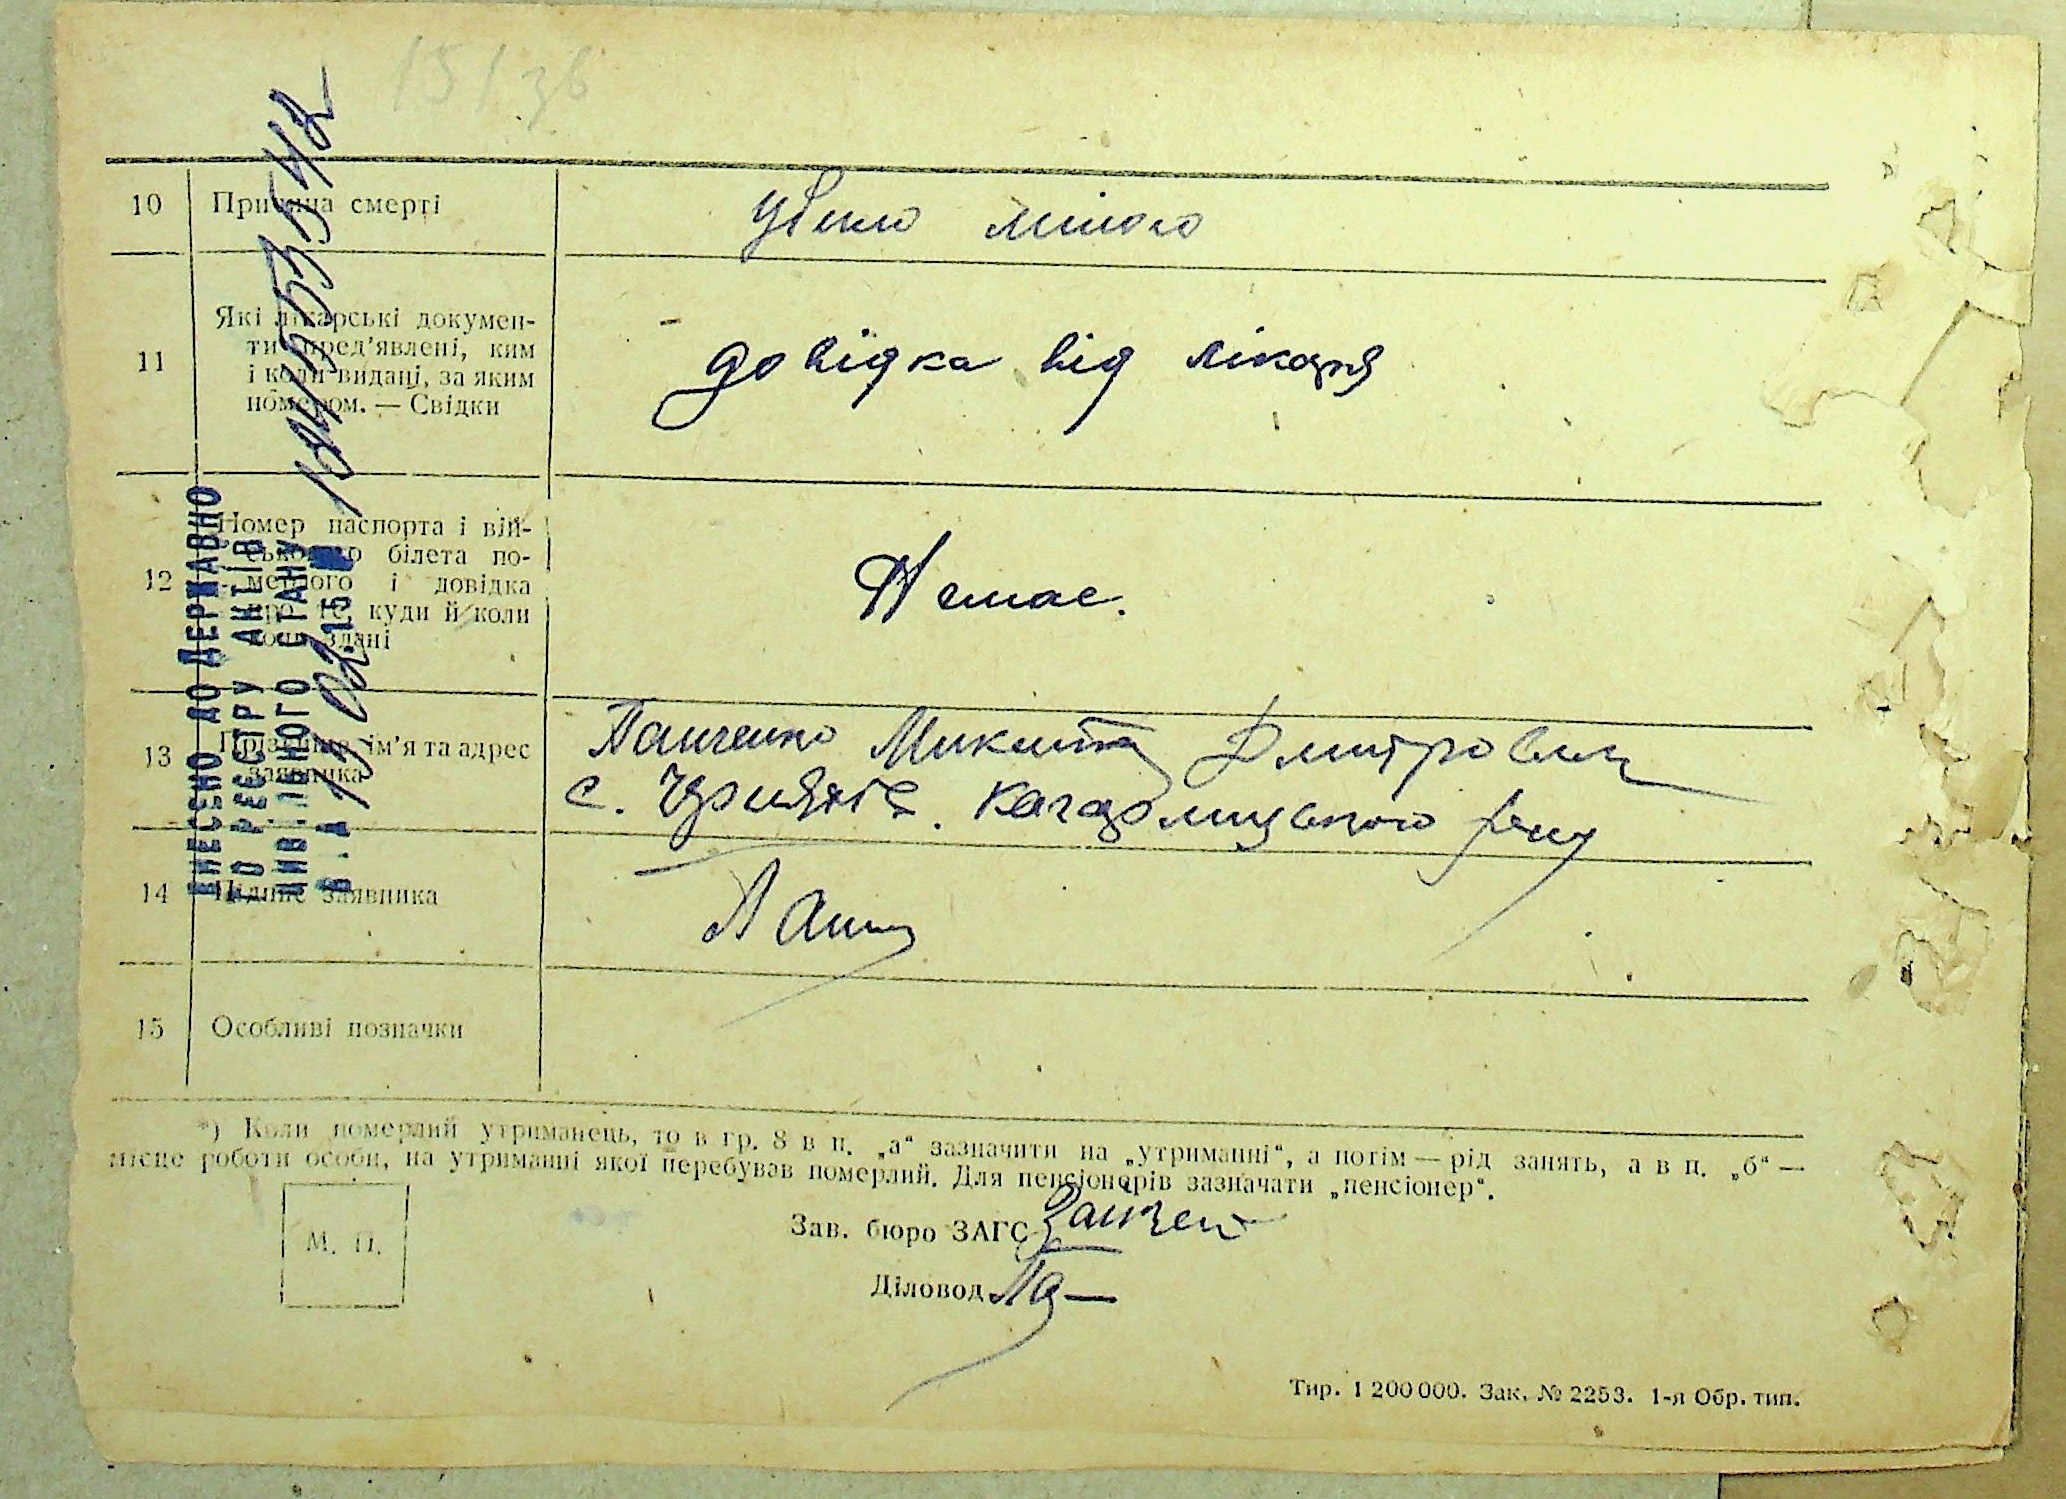 151 зв
10 Причина смерті
убило міною
11 Які лікарські докумен-
ти пред'явлені, ким
і коли видані, за яким
номером. — Свідки
довідка від лікаря
12 Номер паспорта і вій-
ськового білета по-
мерлого і довідка
про те, куди й коли
вони здані
Немає.
13 Прізвище, ім'я та адрес
заявника
Панченко Микита Дмитрович
с. Кагарлицького р-ну
14 Підпис заявника
Панч
15 Особливі позначки
ВНЕСЕНО ДО ДЕРЖАВНО
ГО РЕЄСТРУ АКТІВ
ЦИВІЛЬНОГО СТАНУ
В.А 02.15
*) Коли померлий утриманець, то в гр. 8 в п. „а“ зазначити на „утриманні“, а потім — рід занять, а в п. „б“ —
місце роботи особи, на утриманні якої перебував померлий. Для пенсіонерів зазначати „пенсіонер“.
М. П.
Зав. бюро ЗАГС
Діловод
Тир. 1 200 000. Зак. № 2253. 1-я Обр. тип.